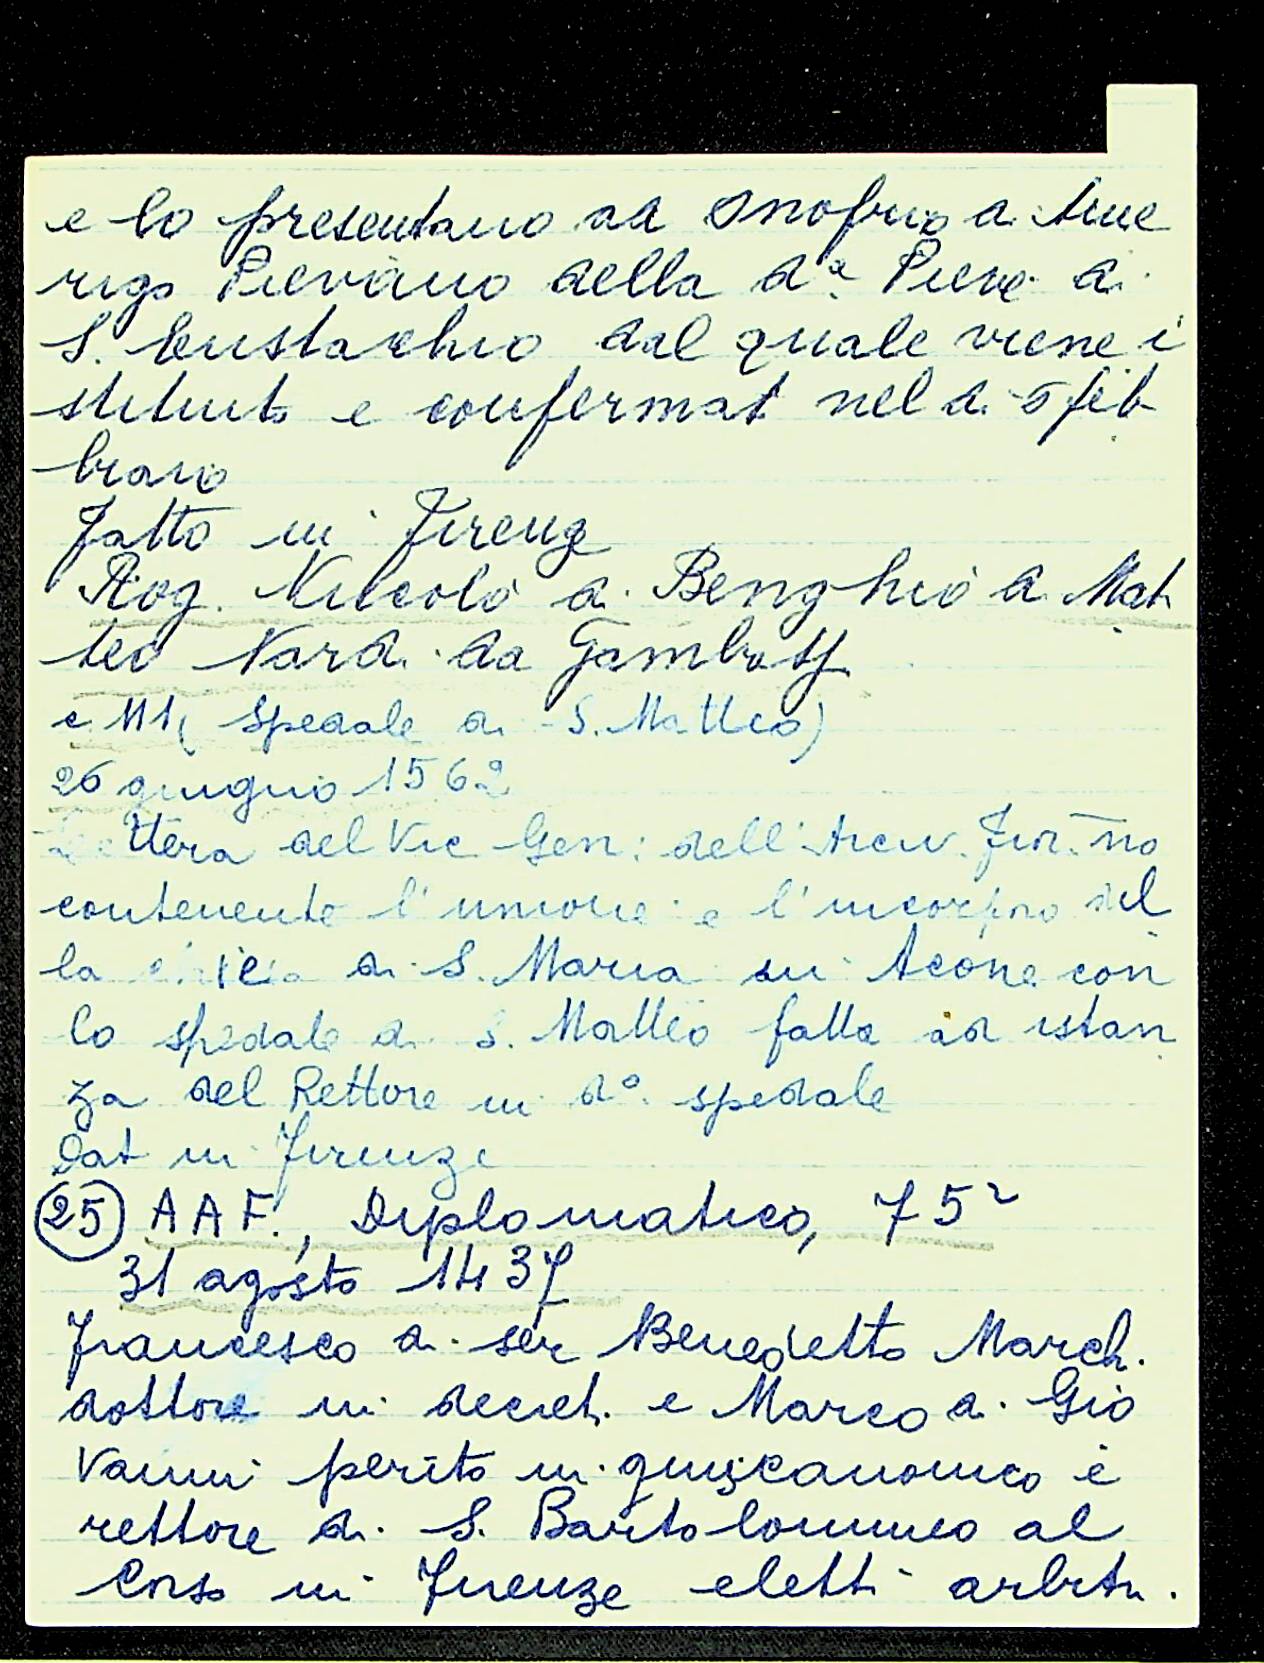 e lo presentano ad Onofrio di Ame
rigo Pievano della d.ª Pieve di
S. Eustachio dal quale viene i
stituito e confermat nel dì 5 feb
braio
Fatto in Firenze
Rog. Niccolò di Benghio di Mat
teo Nardi da Gambassi
c 111 (Spedale di S. Matteo)
26 giugno 1562
Lettera del Vic Gen: dell'Arciv. Fior.no
contenente l'unione e l'incorporo del
la chiesa di S. Maria in Acone con
lo spedale di S. Matteo fatta ad istan
za del Rettore in d.º spedale
Dat in Firenze
(25) AAF., Diplomatico, 75²
31 agosto 1437
Francesco di ser Benedetto March.
dottore in decret. e Marco di Gio
vanni perito in gius canonico e
rettore di S. Bartolommeo al
Corso in Firenze eletti arbitri.